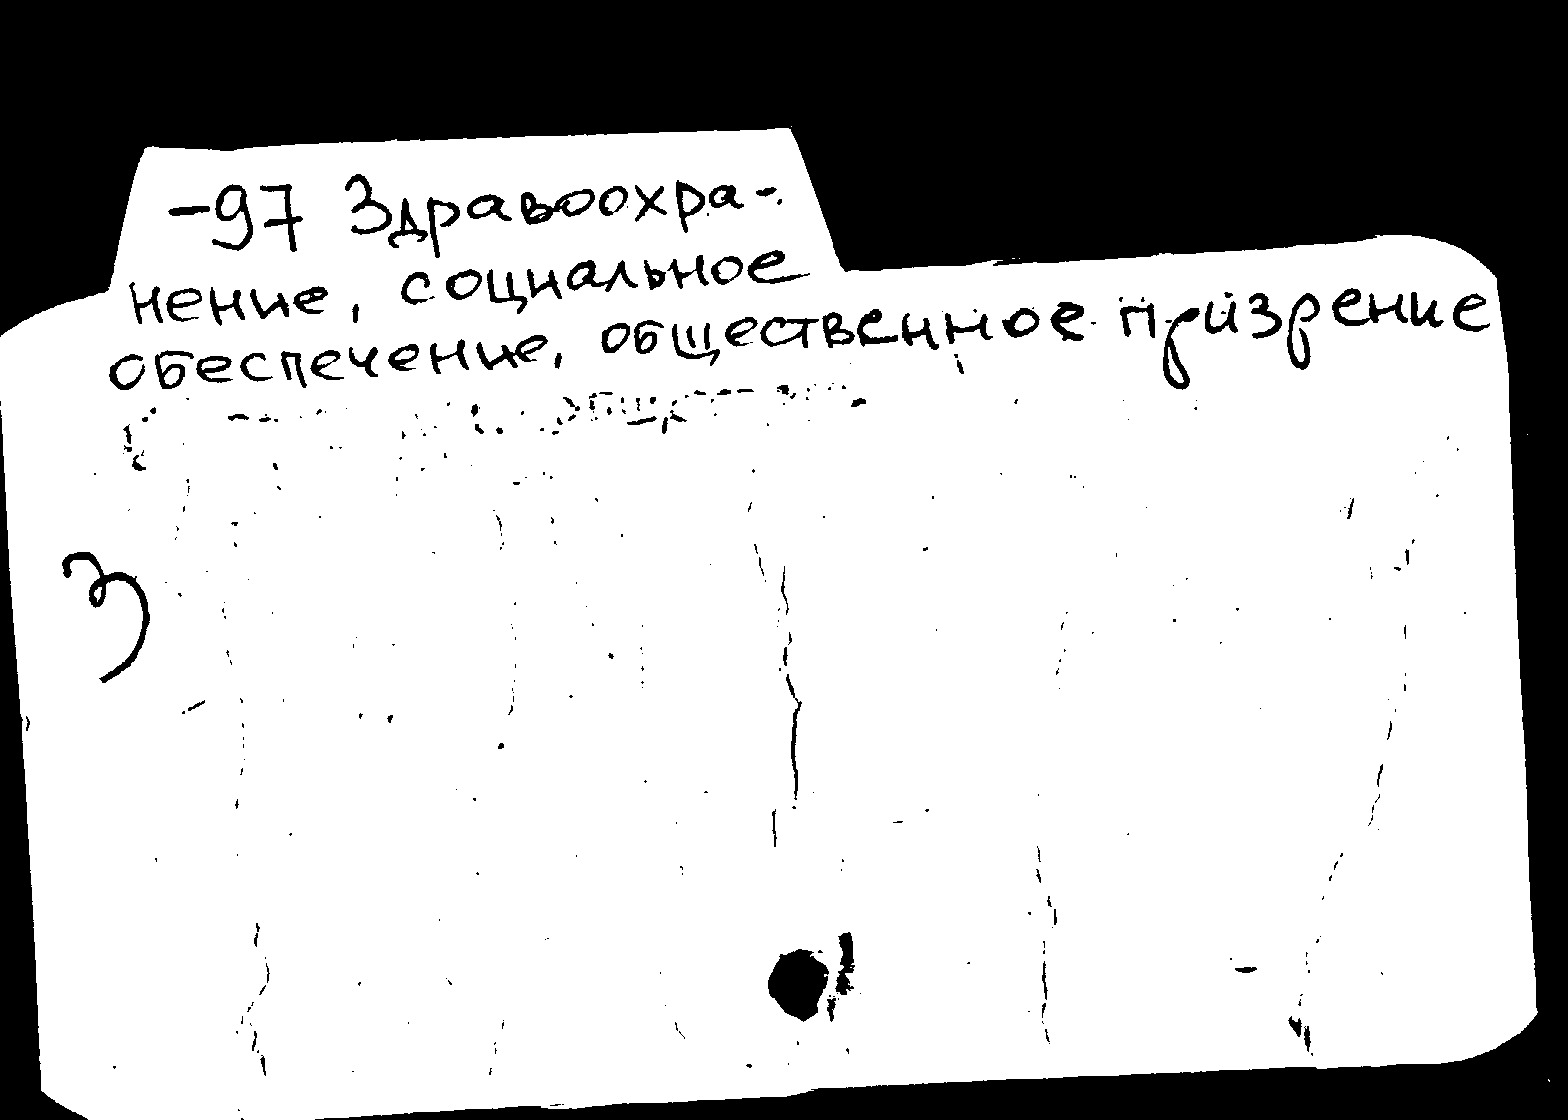 -97 Здравоохра-
нение, социальное
обеспечение, общественное призрение
З